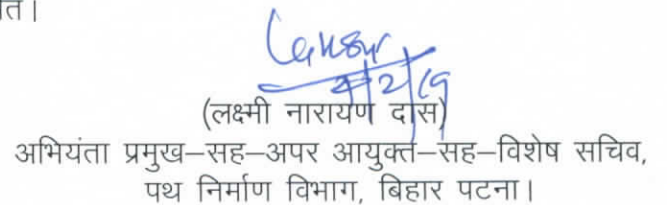 त।
(लक्ष्मी नारायण दास)
अभियंता प्रमुख–सह–अपर आयुक्त–सह–विशेष सचिव,
पथ निर्माण विभाग, बिहार पटना।